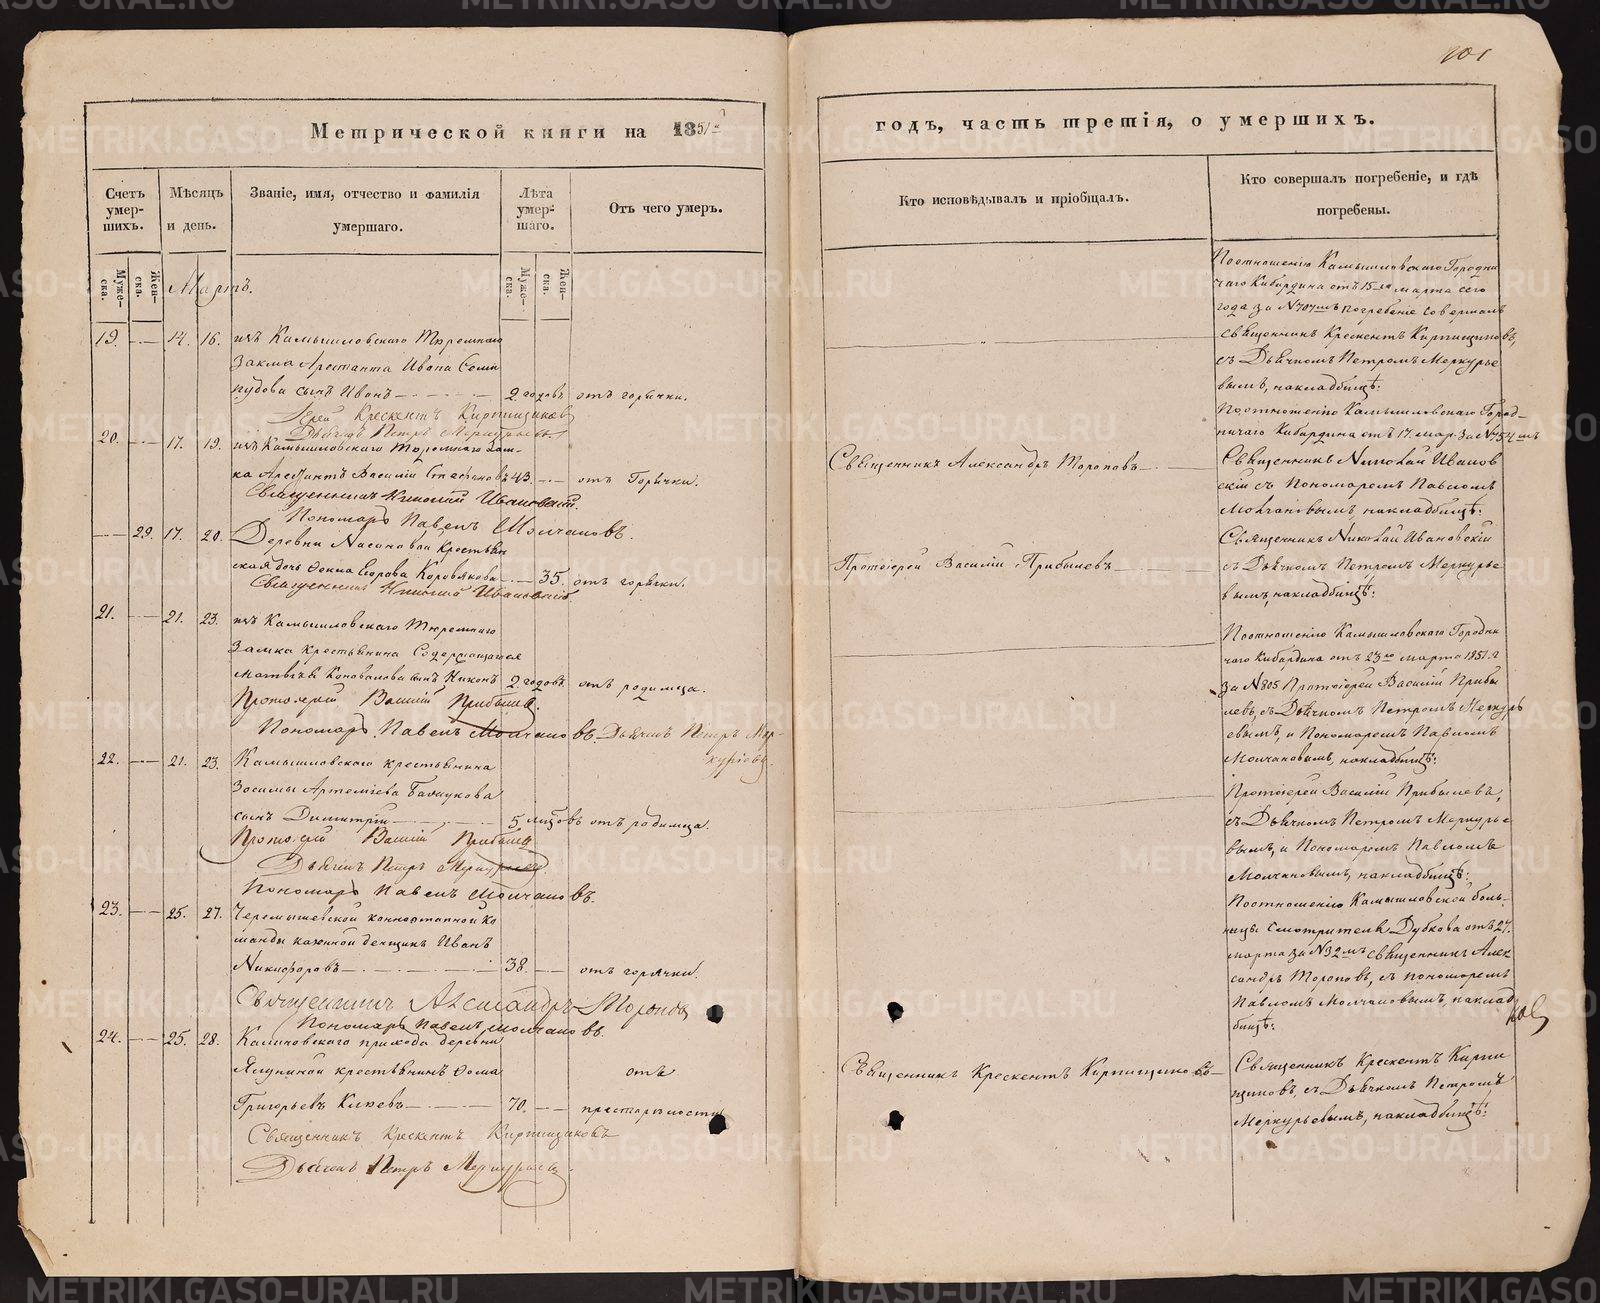 101
Метрической книги на 1851 й
годъ, часть третія, о умершихъ.
Счетъ умер-шихъ.
Мѣсяцъ и день.
Званіе, имя, отчество и фамилія умершаго.
Лѣта умер-шаго.
Отъ чего умеръ.
Кто исповѣдывалъ и пріобщалъ.
Кто совершалъ погребеніе, и гдѣ погребены.
Муже-ска.
Жен-ска.
Мартъ.
Муже-ска.
Жен-ска.
19. 14. 16. изъ Камышловскаго Тюремнаго
Замка Арестанта Ивана
сынъ Иванъ 2 годовъ отъ горячки.
Іерей Крескентъ Кирпищиковъ
Дьячекъ Петръ Меркурьевъ
По отношенію Камышловскаго Городни
чаго Кибардина отъ 15го марта сего
года за №707мъ погребеніе совершалъ
священникъ Крескентъ Кирпищиковъ,
съ Дьячкомъ Петромъ Меркурье
вымъ, на кладбищѣ:
20. 17. 19. изъ Камышловскаго Тюремнаго Зам-
ка Арестантъ Василій Степановъ 43. отъ Горячки.
Священникъ Николай Ивановскій.
Пономарь Павелъ Молчановъ.
Священникъ Александръ Тороповъ
По отношенію Камышловскаго Город-
ничаго Кибардина отъ 17. мар. за №754мъ
Священникъ Николай Иванов
скій съ Пономаремъ Павломъ
Молчановымъ, на кладбищѣ:
29. 17. 20. Деревни Насоновой Крестьян
ская дочь Егорова Коровякова 35. отъ горячки.
Священникъ Николай Ивановскій
Протоіерей Василій Прибылевъ
Священникъ Николай Ивановскій
съ Дьячкомъ Петромъ Меркурье
вымъ, на кладбищѣ:
21. 21. 23. изъ Камышловскаго Тюремнаго
Замка крестьянина Содержащагося
Матвѣя Коновалова сынъ Никонъ 2 годовъ отъ родимца.
Протоіерей Василій Прибылев.
Пономарь Павелъ Молчановъ. Дьячекъ Петръ Мер-
курьевъ.
По отношенію Камышловскаго Городни
чаго Кибардина отъ 23го марта 1851. г
за №805 Протоіерей Василій Прибы
левъ, съ Дьячкомъ Петромъ Меркурь
евымъ, и Пономаремъ Павломъ
Молчановымъ, на кладбищѣ:
22. 21. 23. Камышловскаго крестьянина
Зосимы Артеміева
сынъ Димитрій 5 лѣтъ отъ родимца.
Протоіерей Василій Прибылев
Дьячекъ Петръ Меркурьевъ
Пономарь Павелъ Молчановъ.
Протоіерей Василій Прибылевъ,
съ Дьячкомъ Петромъ Меркурье
вымъ, и Пономаремъ Павломъ
Молчановымъ, на кладбищѣ:
23. 25. 27. Черемышевской ко
манды казенной денщикъ Иванъ
Никифоровъ 38. отъ горячки.
Священникъ Александръ Тороповъ
Пономарь Павелъ Молчановъ
По отношенію Камышловской боль-
ницы Смотрителя Дубкова отъ 27.
марта за №32мъ священникъ Алек
сандръ Тороповъ, съ пономаремъ
Павломъ Молчановымъ, на клад
бищѣ:
24. 25. 28. Калиновскаго прихода деревни
Ялуниной крестьянинъ Фома
Григорьевъ 70. отъ
престарѣлости
Священникъ Крескентъ Кирпищиковъ
Дьячекъ Петръ Меркурьевъ
Священникъ Крескентъ Кирпищиковъ
Священникъ Крескентъ Кирпи
щиковъ, съ Дьячкомъ Петромъ
Меркурьевымъ, на кладбищѣ:
METRIKI.GASO-URAL.RU